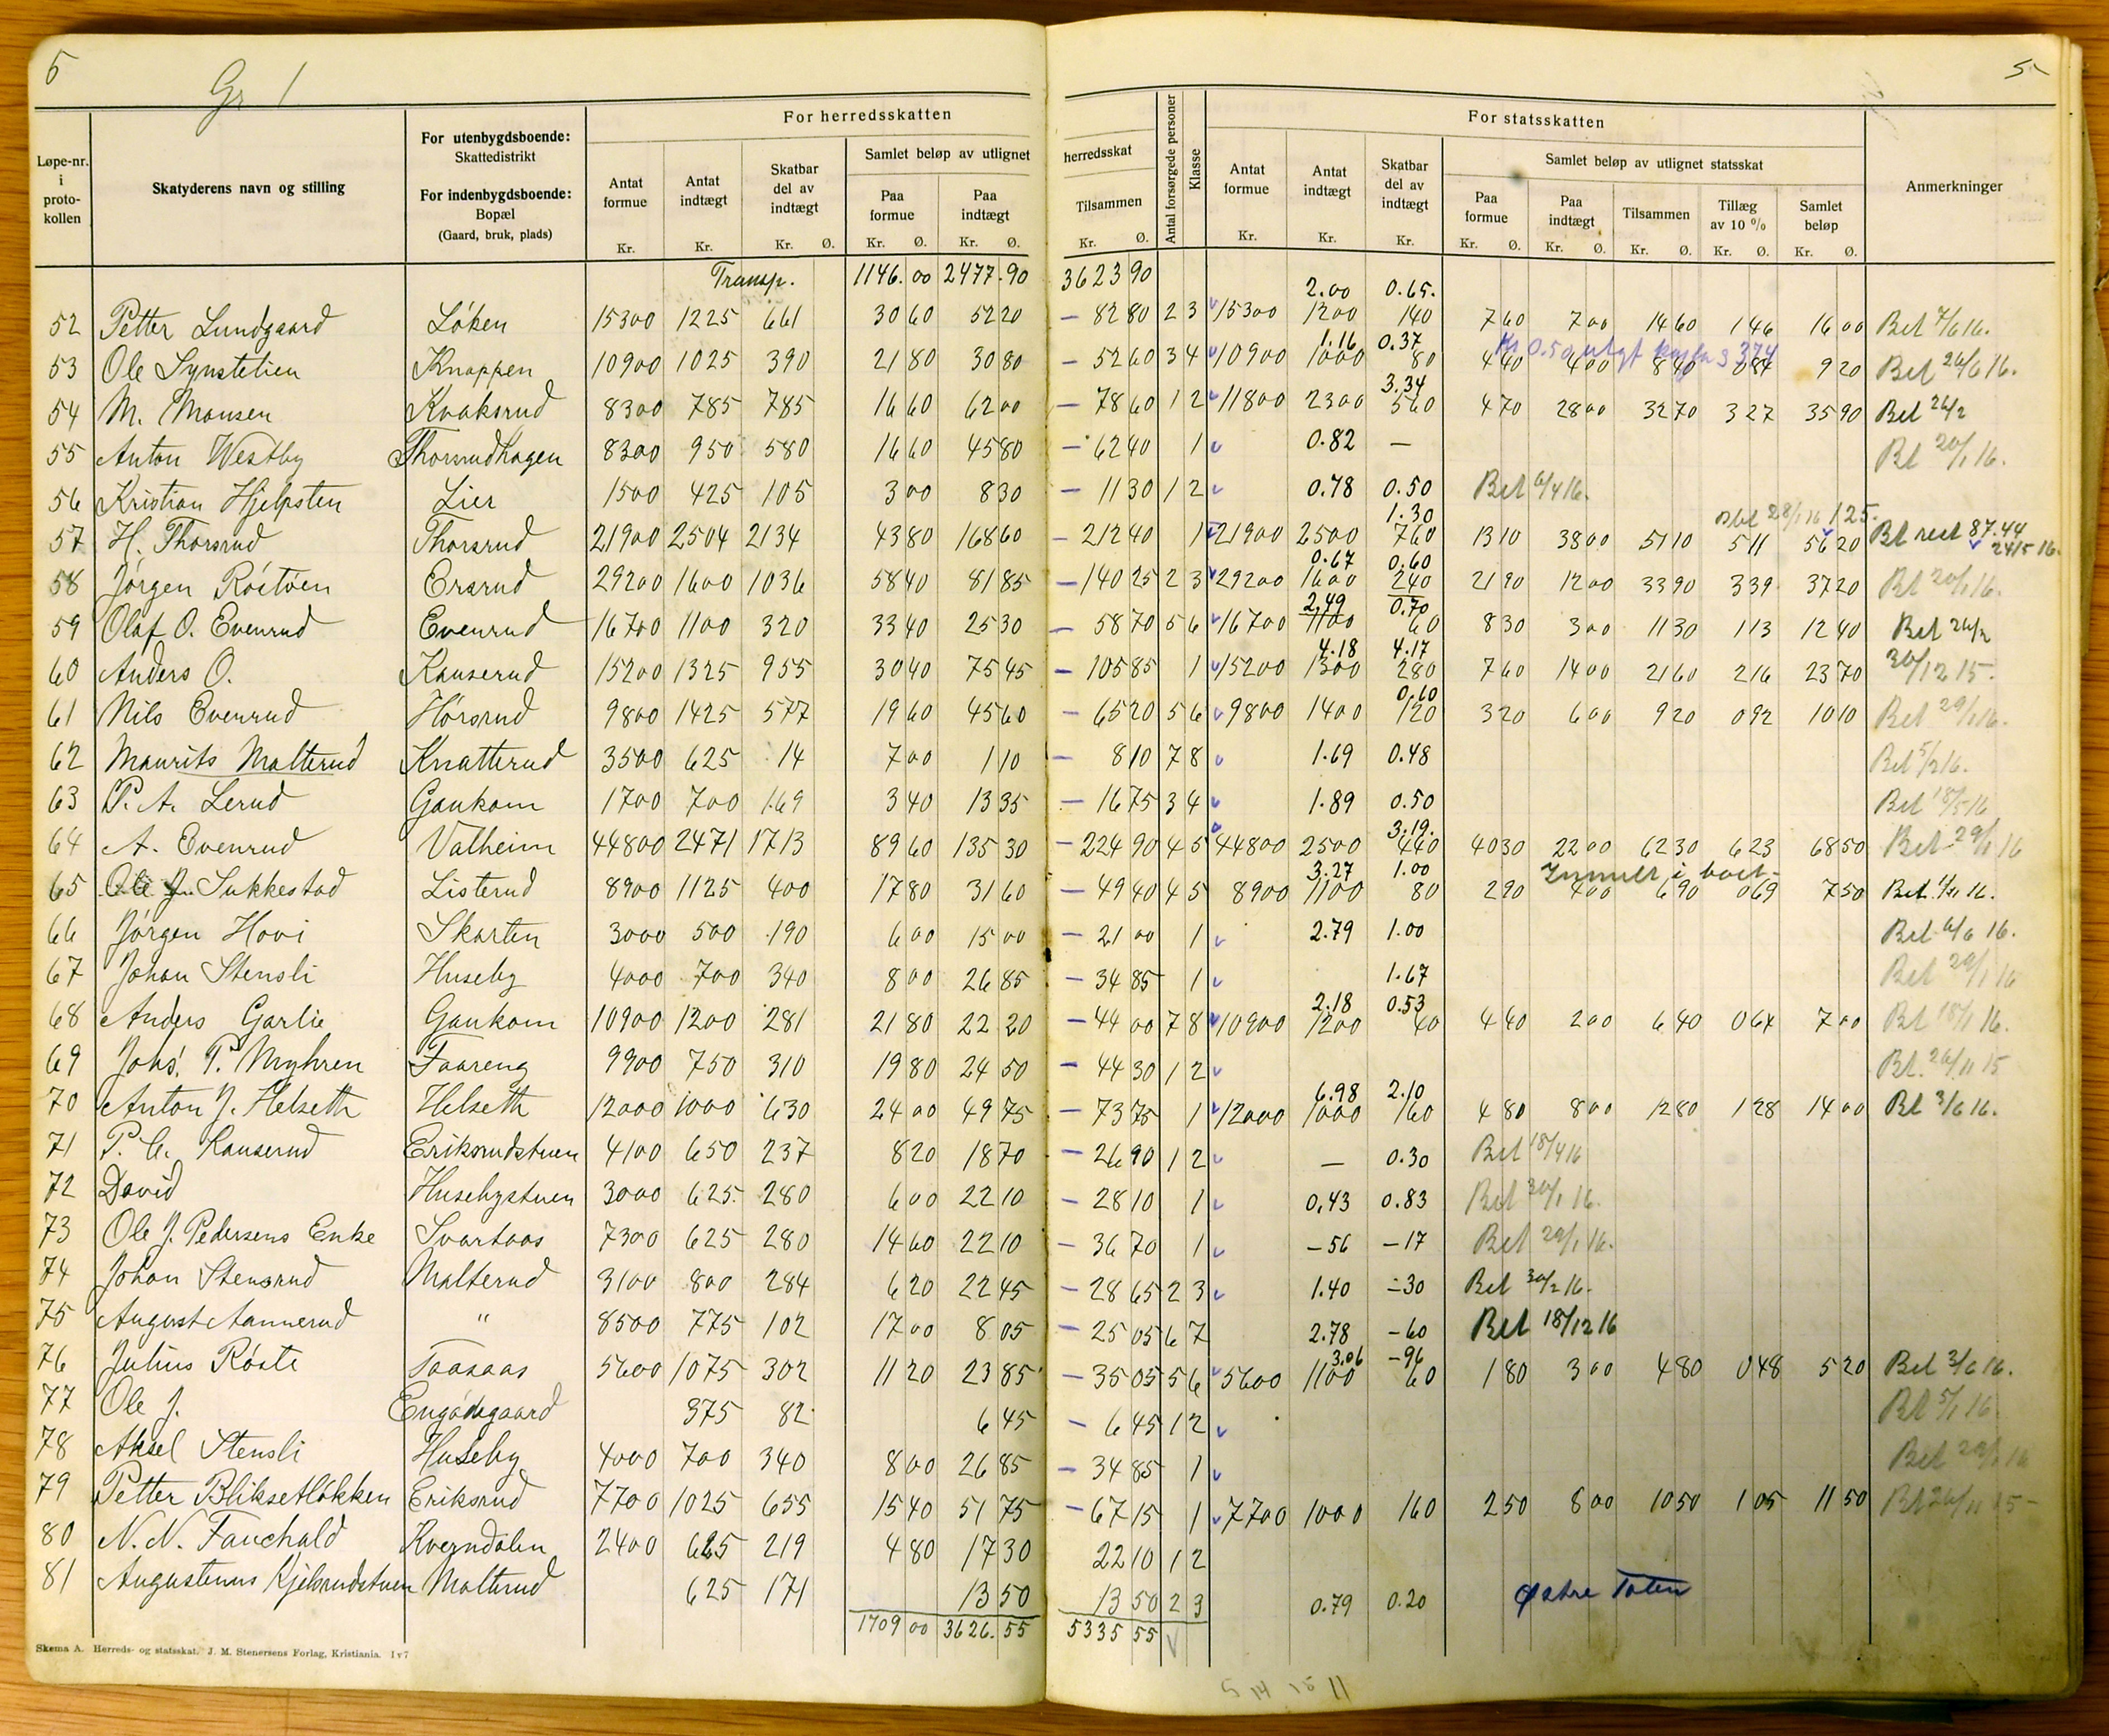 5
Gr 1
5
For herredsskatten
For statsskatten
Løpe-nr. i protokollen
Skatyderens navn og stilling
For utenbygdsboende: Skattedistrikt
For indenbygdsboende: Bopæl (Gaard, bruk, plads)
Antat formue Kr.
Antat indtægt Kr.
Skatbar del av indtægt Kr. Ø.
Samlet beløp av utlignet herredsskat
Paa formue Kr. Ø.
Paa indtægt Kr. Ø.
Tilsammen Kr. Ø.
Antal forsørgede personer
Klasse
Antat formue Kr.
Antat indtægt Kr.
Skatbar del av indtægt Kr.
Samlet beløp av utlignet statsskat
Paa formue Kr. Ø.
Paa indtægt Kr. Ø.
Tilsammen Kr. Ø.
Tillæg av 10 % Kr. Ø.
Samlet beløp Kr. Ø.
Anmerkninger
Transp. 1146.00 2477.90 3623 90
2.00 0.65.
52 Petter Lundgaard Løken 15300 1225 661 30 60 52 20 – 82 80 2 3 15300 1200 140 7 60 7 00 14 60 1 46 16 00 Bet 7/6 16.
1.16 0.37
53 Ole Synstelien Knappen 10900 1025 390 21 80 30 80 – 52 60 3 4 10900 1000 80 4 40 4 00 8 40 0 84 9 20 Bet 26/6 16.
3.34
54 M. Mansen Kvaksrud 8300 785 785 16 60 62 00 – 78 60 1 2 11800 2300 560 4 70 28 00 32 70 3 27 35 90 Bet 26/2
55 Anton Westby Thorsrudhagen 8300 950 580 16 60 45 80 – 62 40 1 0.82 — Bt 20/1 16.
56 Kristian Hjelpsten Lier 1500 425 105 3 00 8 30 – 11 30 1 2 0.78 0.50 Bet 6/4 16.
1.30 28/1 16 125.
57 H. Thorsrud Thorsrud 21900 2504 2134 43 80 168 60 – 212 40 1 21900 2500 760 13 10 38 00 51 10 5 11 56 20 Bt rest 87.44 24/5 16.
0.67 0.60
58 Jörgen Röstöen Ersrud 29200 1600 1036 58 40 81 85 – 140 25 2 3 29200 1600 240 21 90 12 00 33 90 3 39 37 20 Bt 20/1 16.
2.49 0.70
59 Olaf O. Evenrud Evenrud 16700 1100 320 33 40 25 30 – 58 70 5 6 16700 1100 60 8 30 3 00 11 30 1 13 12 40 Bet 26/2
4.18 4.17
60 Anders O. Kauserud 15200 1325 955 30 40 75 45 – 105 85 1 15200 1300 280 7 60 14 00 21 60 2 16 23 70 30/12 15.
0.60
61 Nils Evenrud Hörsrud 9800 1425 577 19 60 45 60 – 65 20 5 6 9800 1400 120 3 20 6 00 9 20 0 92 10 10 Bet 29/1 16.
62 Maurits Malterud Knatterud 3500 625 14 7 00 1 10 – 8 10 7 8 1.69 0.48 Bet 5/2 16.
63 P. A. Lerud Gaukom 1700 700 169 3 40 13 35 – 16 75 3 4 1.89 0.50 Bet 18/5 16
3.19.
64 A. Evenrud Valheim 44800 2471 1713 89 60 135 30 – 224 90 4 5 44800 2500 440 40 30 22 00 62 30 6 23 68 50 Bet 29/1 16
3.27 1.00
65 Ole J. Sukkestad Listerud 8900 1125 400 17 80 31 60 – 49 40 4 5 8900 1100 80 2 90 4 00 6 90 0 69 7 50 Bet 16.
66 Jörgen Hovi Skarten 3000 500 190 6 00 15 00 – 21 00 1 2.79 1.00 Bet 6/6 16.
67 Johan Stensli Huseby 4000 700 340 8 00 26 85 – 34 85 1 1.67 Bet 29/1 16
2.18 0.53
68 Anders Garlie Gaukom 10900 1200 281 21 80 22 20 – 44 00 7 8 10900 1200 40 4 40 2 00 6 40 0 64 7 00 Bt 18/1 16.
69 Johs. P. Myhren Faareng 9900 750 310 19 80 24 50 – 44 30 1 2 Bt. 26/11 15
6.98 2.10
70 Anton J. Helseth Helseth 12000 1000 630 24 00 49 75 – 73 75 1 12000 1000 160 4 80 8 00 12 80 1 28 14 00 Bt 3/6 16.
71 P. C. Kauserud Eriksrudstuen 4100 650 237 8 20 18 70 – 26 90 1 2 — 0.30 Bet 18/4 16
72 David Husebystuen 3000 625 280 6 00 22 10 – 28 10 1 0,43 0.83 Bet 30/1 16.
73 Ole J. Pedersens Enke Svartaas 7300 625 280 14 60 22 10 – 36 70 1 –56 –17 Bet 29/1 16.
74 Johan Stensrud Malterud 3100 800 284 6 20 22 45 – 28 65 2 3 1.40 –30 Bet 30/2 16.
75 August Aannerud " 8500 775 102 17 00 8 05 – 25 05 6 7 2.78 –60 Bet 18/12 16
3.06 –96
76 Julius Röste Taasaas 5600 1075 302 11 20 23 85 – 35 05 5 6 5600 1100 60 1 80 3 00 4 80 0 48 5 20 Bet 3/6 16.
77 Ole J. Engödegaard 375 82 6 45 – 6 45 1 2 Bt 5/1 16
78 Aksel Stensli Huseby 4000 700 340 8 00 26 85 – 34 85 1 Bet 29/1 16
79 Petter Bliksetløkken Eriksrud 7700 1025 655 15 40 51 75 – 67 15 1 7700 1000 160 2 50 8 00 10 50 1 05 11 50 Bt 26/11 15
80 N. N. Fauchald Kverndalen 2400 625 219 4 80 17 30 22 10 1 2
81 Augustinus Kjelsrudstuen Malterud 625 171 13 50 13 50 2 3 0.79 0.20 Østre Toten
1709 00 3626.55 5335 55
Skema A. Herreds- og statsskat. J. M. Stenersens Forlag, Kristiania. I v 7
5 14 15 11